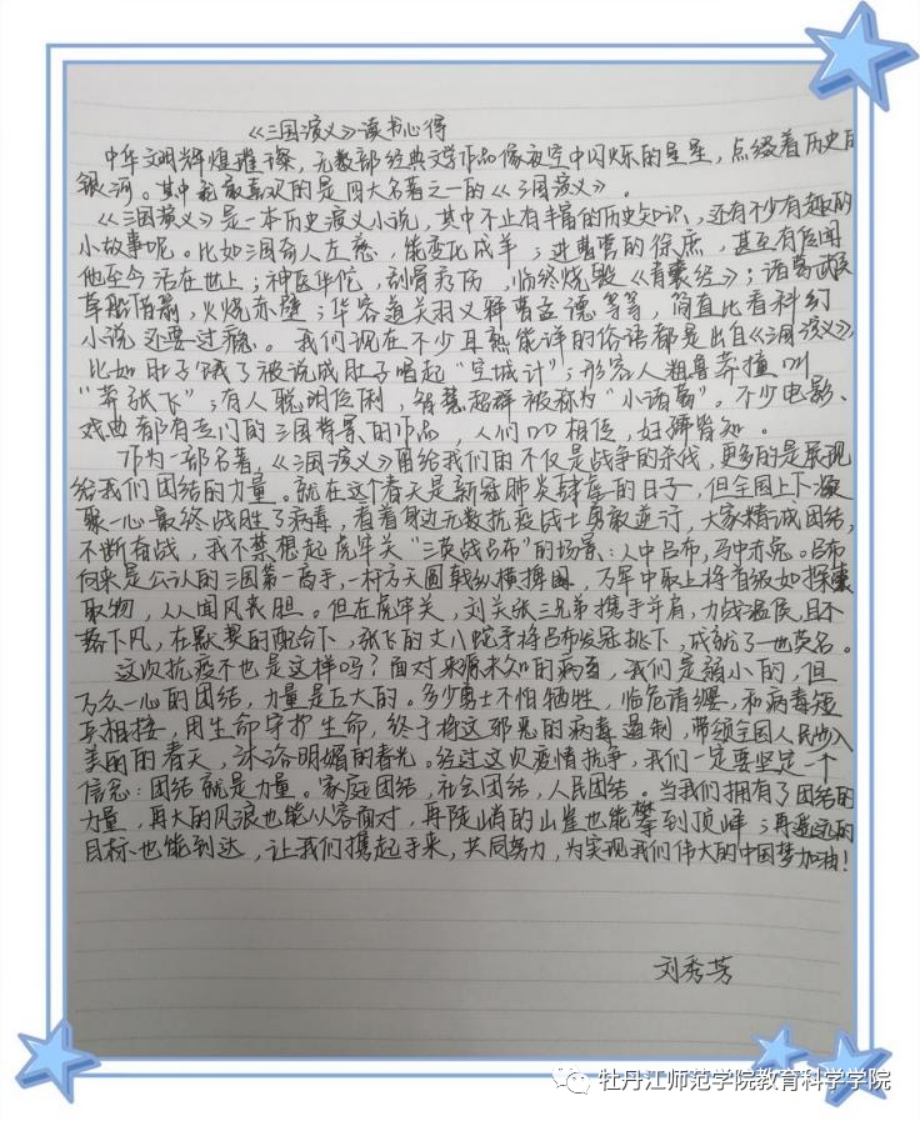 《三国演义》读书心得
中华文明辉煌璀璨，无数部经典文学作品像夜空中闪烁的星星，点缀着历史的
银河。其中我最喜欢的是四大名著之一的《三国演义》.
《三国演义》是一本历史演义小说，其中不止有丰富的历史知识、还有不少有趣的
小故事呢。比如三国奇人左慈，能变化成羊；进曹营的徐庶，甚至有传闻
他至今活在世上；神医华佗，刮骨疗伤，临终烧毁《青囊经》；诸葛武侯
草船借箭，火烧赤壁；华容道关羽义释曹孟德等等，简直比看科幻
小说还要过瘾。我们现在不少耳熟能详的俗语都是出自《三国演义》
比如肚子饿了被说成肚子唱起“空城计”；形容人粗鲁莽撞叫
“莽张飞”；有人聪明伶俐，智慧超群被称为“小诸葛”。不少电影、
戏曲都有专门的三国背景的作品，人们口口相传，妇孺皆知。
作为一部名著，《三国演义》留给我们的不仅是战争的杀伐，更多的是展现
给我们团结的力量。就在这个春天是新冠肺炎肆虐的日子，但全国上下凝
聚一心最终战胜了病毒，看着身边无数抗疫战士勇敢逆行，大家精诚团结，
不断奋战，我不禁想起虎牢关“三英战吕布”的场景：人中吕布，马中赤兔。吕布
向来是公认的三国第一高手，一杆方天画戟纵横捭阖，万军中取上将首级如探囊
取物，人人闻风丧胆。但在虎牢关，刘关张三兄弟携手并肩，力战温侯，且不
落下风，在默契的配合下，张飞的丈八蛇矛将吕布发冠挑下，成就了一世英名。
这次抗疫不也是这样吗？面对来源未知的病毒，我们是弱小的，但
万众一心的团结，力量是巨大的。多少勇士不怕牺牲，临危请缨，和病毒短
兵相接，用生命守护生命，终于将这邪恶的病毒遏制，带领全国人民步入
美丽的春天，沐浴明媚的春光。经过这次疫情抗争，我们一定要坚定一个
信念：团结就是力量。家庭团结，社会团结，人民团结。当我们拥有了团结的
力量，再大的风浪也能从容面对，再陡峭的山崖也能攀到顶峰；再遥远的
目标也能到达，让我们携起手来，共同努力，为实现我们伟大的中国梦加油！
刘秀芳
牡丹江师范学院教育科学学院